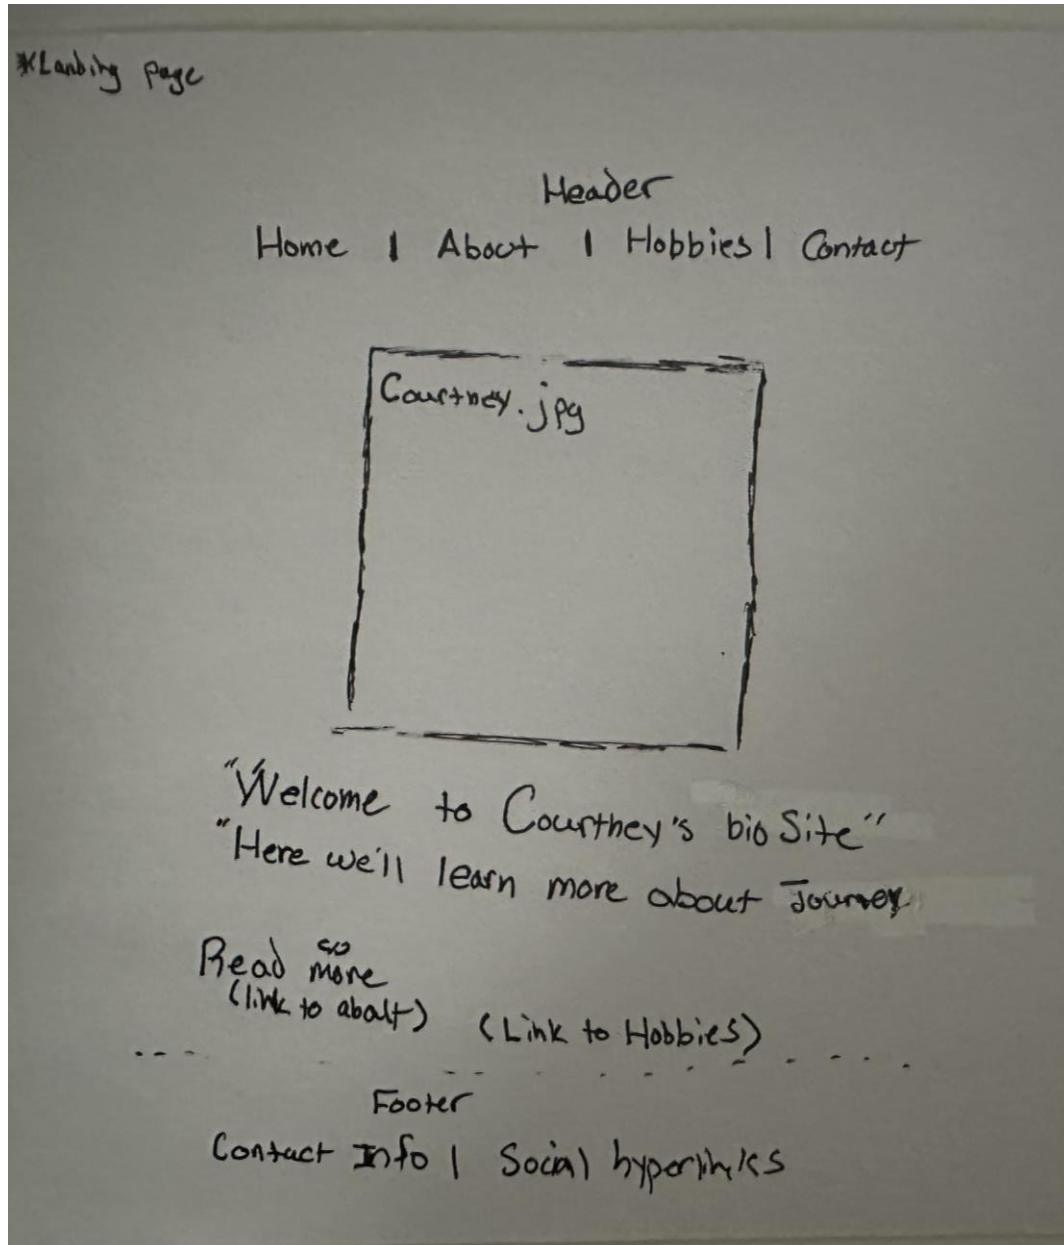 *Landing page
Header
Home | About | Hobbies | Contact
Courtney.jpg
"Welcome to Courtney's bio Site"
"Here we'll learn more about Journey
Read more
(link to abalt) (Link to Hobbies)
Footer
Contact Info | Social hyperlinks